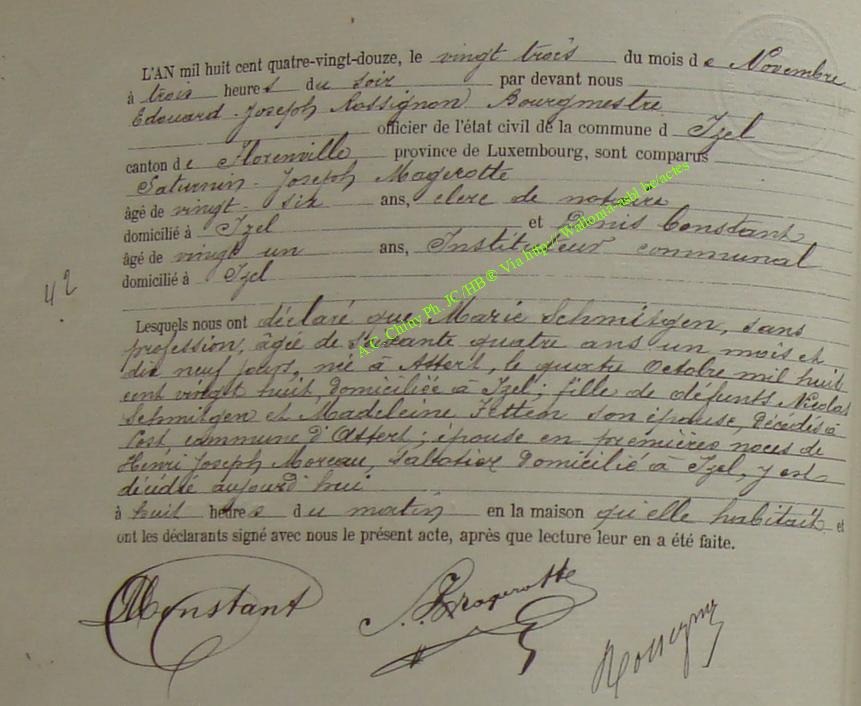 L'AN mil huit cent quatre-vingt-douze, le vingt trois du mois de Novembre
à trois heures du soir par devant nous
Edouard-Joseph Rossignon Bourgmestre
officier de l'état civil de la commune d Izel
canton de Florenville province de Luxembourg, sont comparus
Saturnin-Joseph Magerotte
âgé de vingt-six ans, clerc de notaire
domicilié à Izel et Constant
âgé de vingt un ans, Instituteur communal
domicilié à Izel
42
Lesquels nous ont déclaré que Marie Schmitgen, sans
profession, âgée de soixante quatre ans un mois et
dix neuf jours, née à Attert, le quatre Octobre mil huit
cent vingt huit, domiciliée à Izel; fille de défunts Nicolas
Schmitgen et Madeleine son épouse, décédés à
Post commune d'Attert; épouse en premières noces de
Henri Joseph Moreau, sabotier domicilié à Izel, y est
décédée aujourd'hui
à huit heures du matin en la maison qu'elle habitait et
ont les déclarants signé avec nous le présent acte, après que lecture leur en a été faite.
Constant
S. J. Magerotte
Rossignon
A.C. Chiny Ph. JC /HB @ Via http// Wallonia-asbl.be/actes